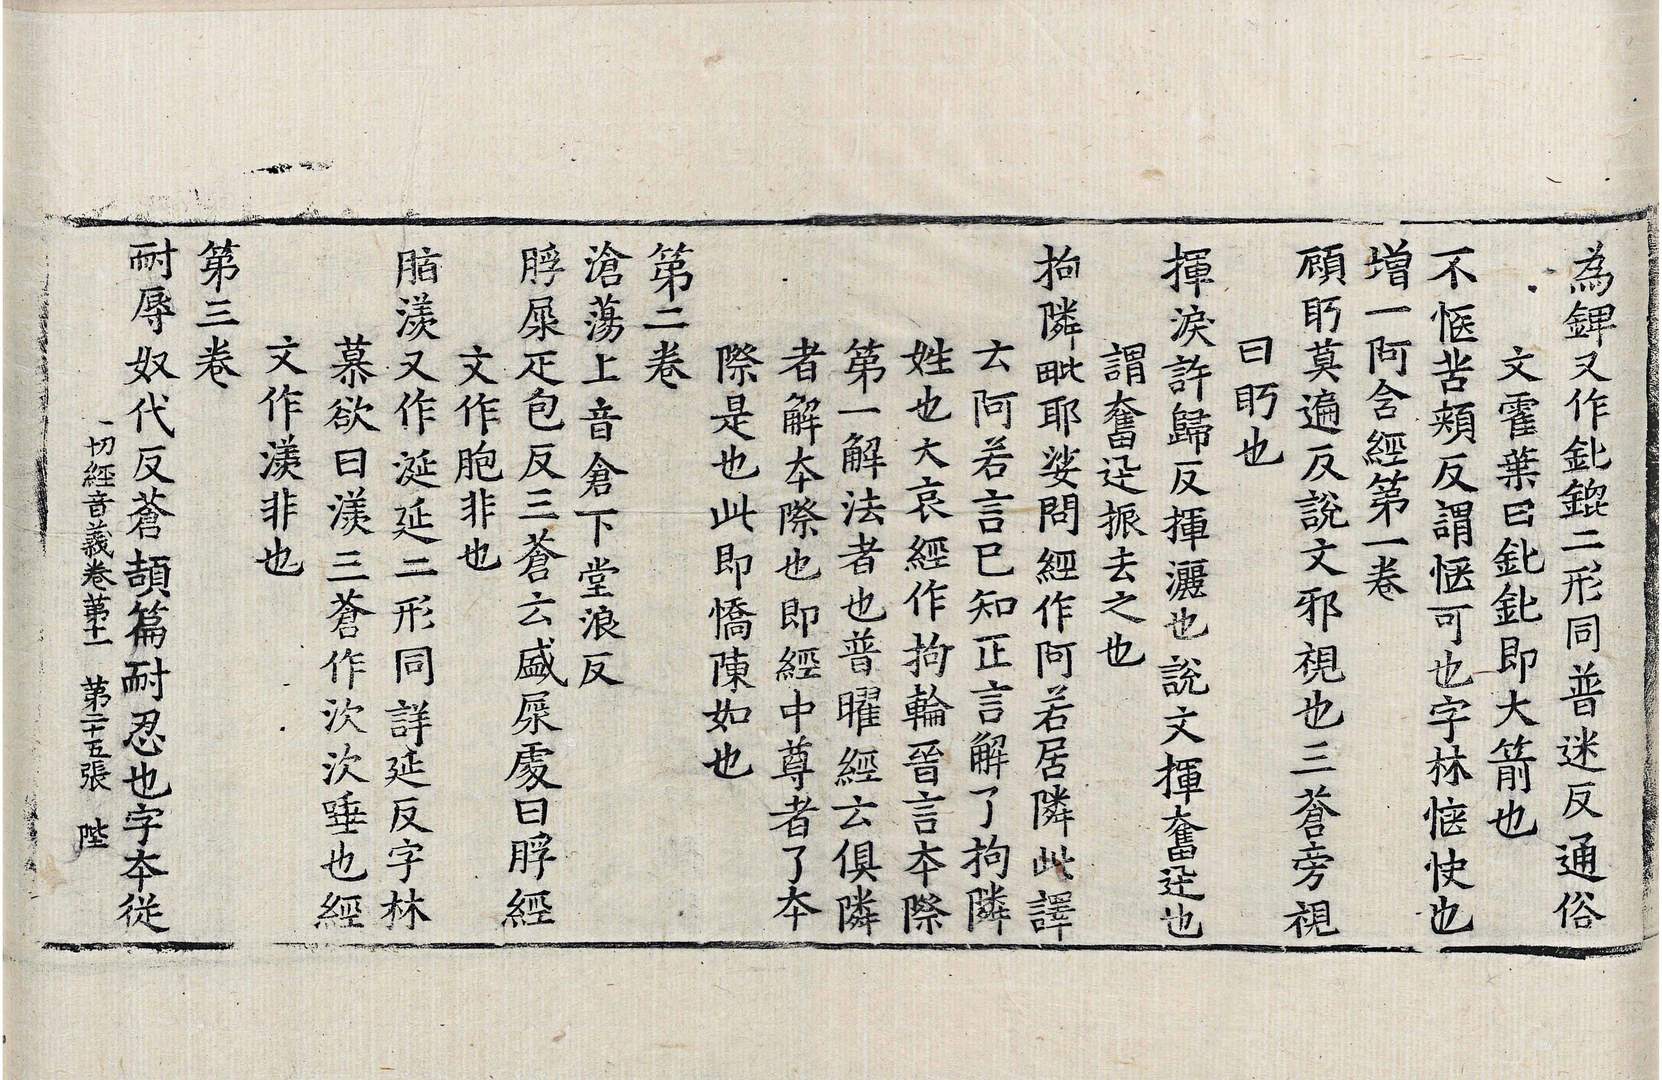 為錍又作𨥦鎞二形同普迷反通俗
文霍葉曰𨥦𨥦即大箭也
不愜苦頰反謂愜可也字林愜快也
增一阿含經第一卷
頋眄莫遍反說文邪視也三蒼旁視
曰眄也
揮淚許歸反揮灑也說文揮奮迅也
謂奮迅振去之也
拘隣毗耶娑問經作阿若居隣此譯
云阿若言已知正言解了拘隣
姓也大哀經作拘輪晉言本際
第一解法者也普曜經云俱隣
者解本際也即經中尊者了本
際是也此即憍陳如也
第二卷
滄蕩上音倉下堂浪反
脬屎疋包反三蒼云盛屎處曰脬經
文作胞非也
脂渼又作涎㳄二形同詳延反字林
慕欲曰渼三蒼作㳄㳄唾也經
文作渼非也
第三卷
耐辱奴代反蒼頡篇耐忍也字本從
一切經音義卷第十一 第二十五張 陛